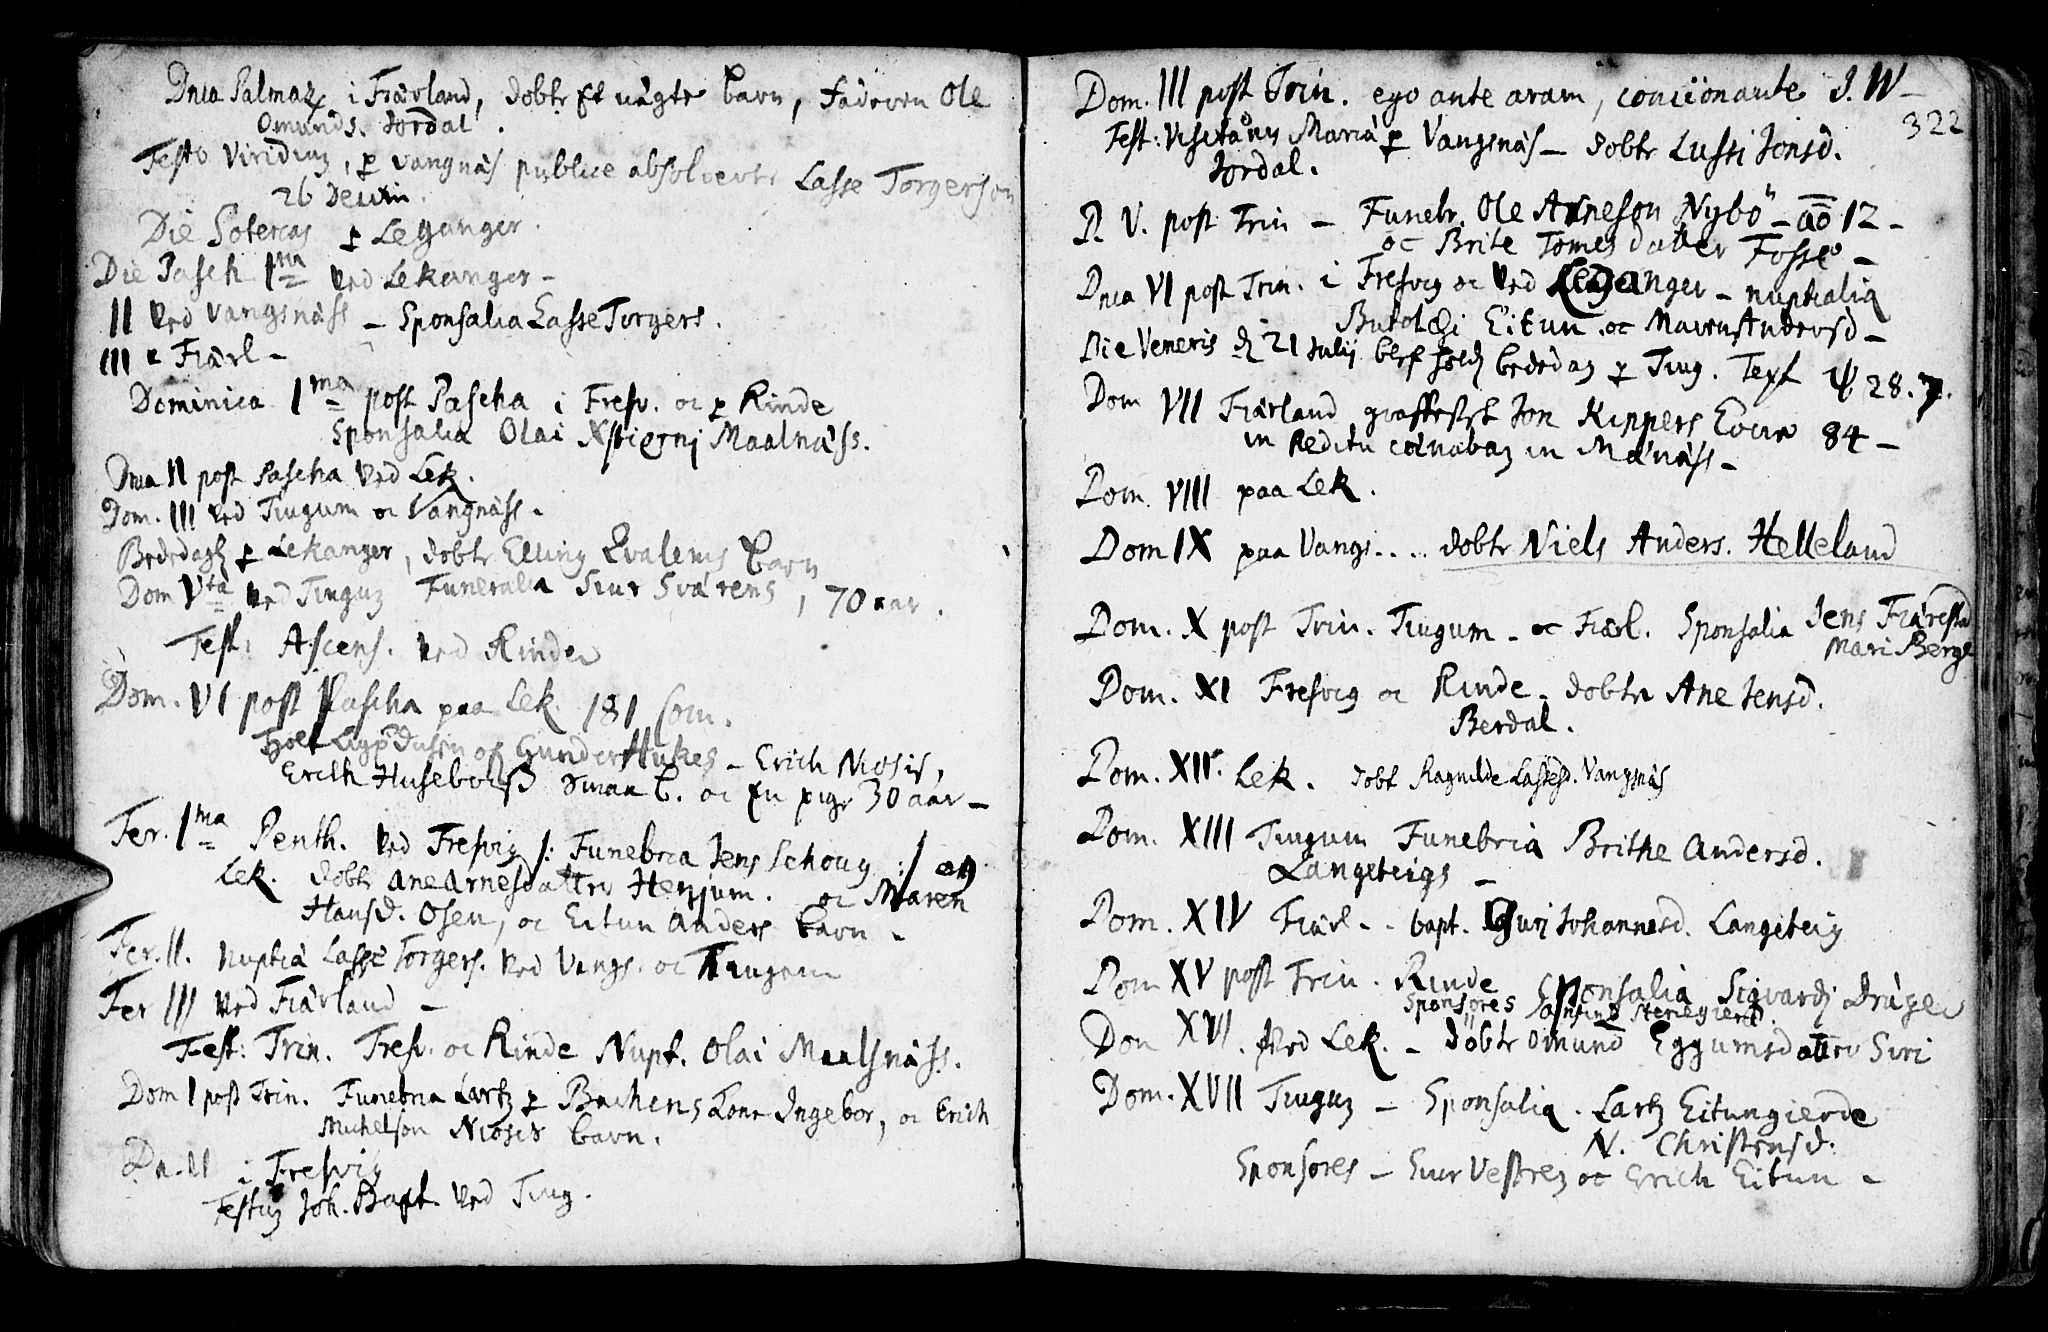 Dnca Palmaz i Fiærland, døbtr Et uægte barn, faderen Ole
Omunds. Jordal.
Festo Viridium, p Vangnæs publice absolverte Lasse Torgerson
26 Decim.
Die Soteras p Leganger.
Die Pasch 1ma Ved Lekanger –
II Ved Vangsnæss – Sponsalia Lasse Torgers.
III – Fiærl –
Dominica 1ma post Pascha i Fresv. oc p Rinde
Sponsalia Olai Maalnæss.
Dnca II post Pascha Ved Lek.
Dom. III Ved Tiugum oc Vangnæss.
Bededagh p Lekanger, døbtr Elling Qvalems barn
Dom Vta Ved Tiugum Funeralia Siur Sværens, 70 aar.
Fest: Ascens. Ved Rinde
Dom. VI post Pascha paa Lek. 181 com.
Gunder Hukes – Erich Niosis,
Erich Husebois smaa b. oc en pige 30 aar –
Fer. 1ma Penth. Ved Fresvig /: Funebria Jens Schoug :/ og
Lek. døbtr Ane Arnesdatter Henjum. oc Maren
Hansd. Osen, oc Eitun Anders barn –
Fer. II. Nuptiæ Lasse Torgers. Ved Vangs. oc Tiugum
Fer III Ved Fiærland –
Fest: Trin. Fresv. oc Rinde Nupt. Olai Maalsnæss.
Dom I post Trin. Funebria Lartz p Bachens Kone Ingebor, oc Erich
Michelson Niosis barn.
Dn. II i Fresvig
Festum Joh. Bapt. Ved Tiug.
322
Dom. III post Trin. ego ante aram, concionante J. W –
Fest: Visitãonis Mariæ p Vangsnæs – døbtr Lussi Jonsd.
Jordal.
D. V. post Trin – Funebr. Ole Arneson Nybö – aõ 12 –
oc Brite Tomesdatter Fosse –
Dnca VI post Trin. i Fresvig oc Ved Leganger – nuptialia
Eitun oc Maren Andersd –
Die Veneris d 21 Julij blef hold bededag p Tiug. Text Ψ 28. 7.
Dom VII Fiærland graffestet Jon Kippers Eovin 84 –
in Reditu coenabam in Mænæss –
Dom. VIII paa Lek.
Dom IX paa Vangs.... døbtr Niels Anders. Helleland
Dom. X post Trin. Tiugum – oc Fiærl. Sponsalia Jens Fiærestad
Mari Berge
Dom. XI Fresvig oc Rinde – døbtr Ane Jensd.
Berdal.
Dom. XII. Lek. døbt Ragnilde Lassesd. Vangsnæs
Dom. XIII Tiugum Funebria Brithe Andersd.
Langeteigs –
Dom. XIV Fiærl – bapt. Guri Johannesd. Langeteig
Dom XV post Trin. Rinde Sponsalia Sigvardj Dræge
Sponsores
Dom XVI. Ved Lek. – døbtr Omund Eggumsdatter Siri
Dom. XVII Tiugum – Sponsalia. Lartz Eitungierde
N. Christensd.
Sponsores – Siur Vestrem oc Erich Eitun –